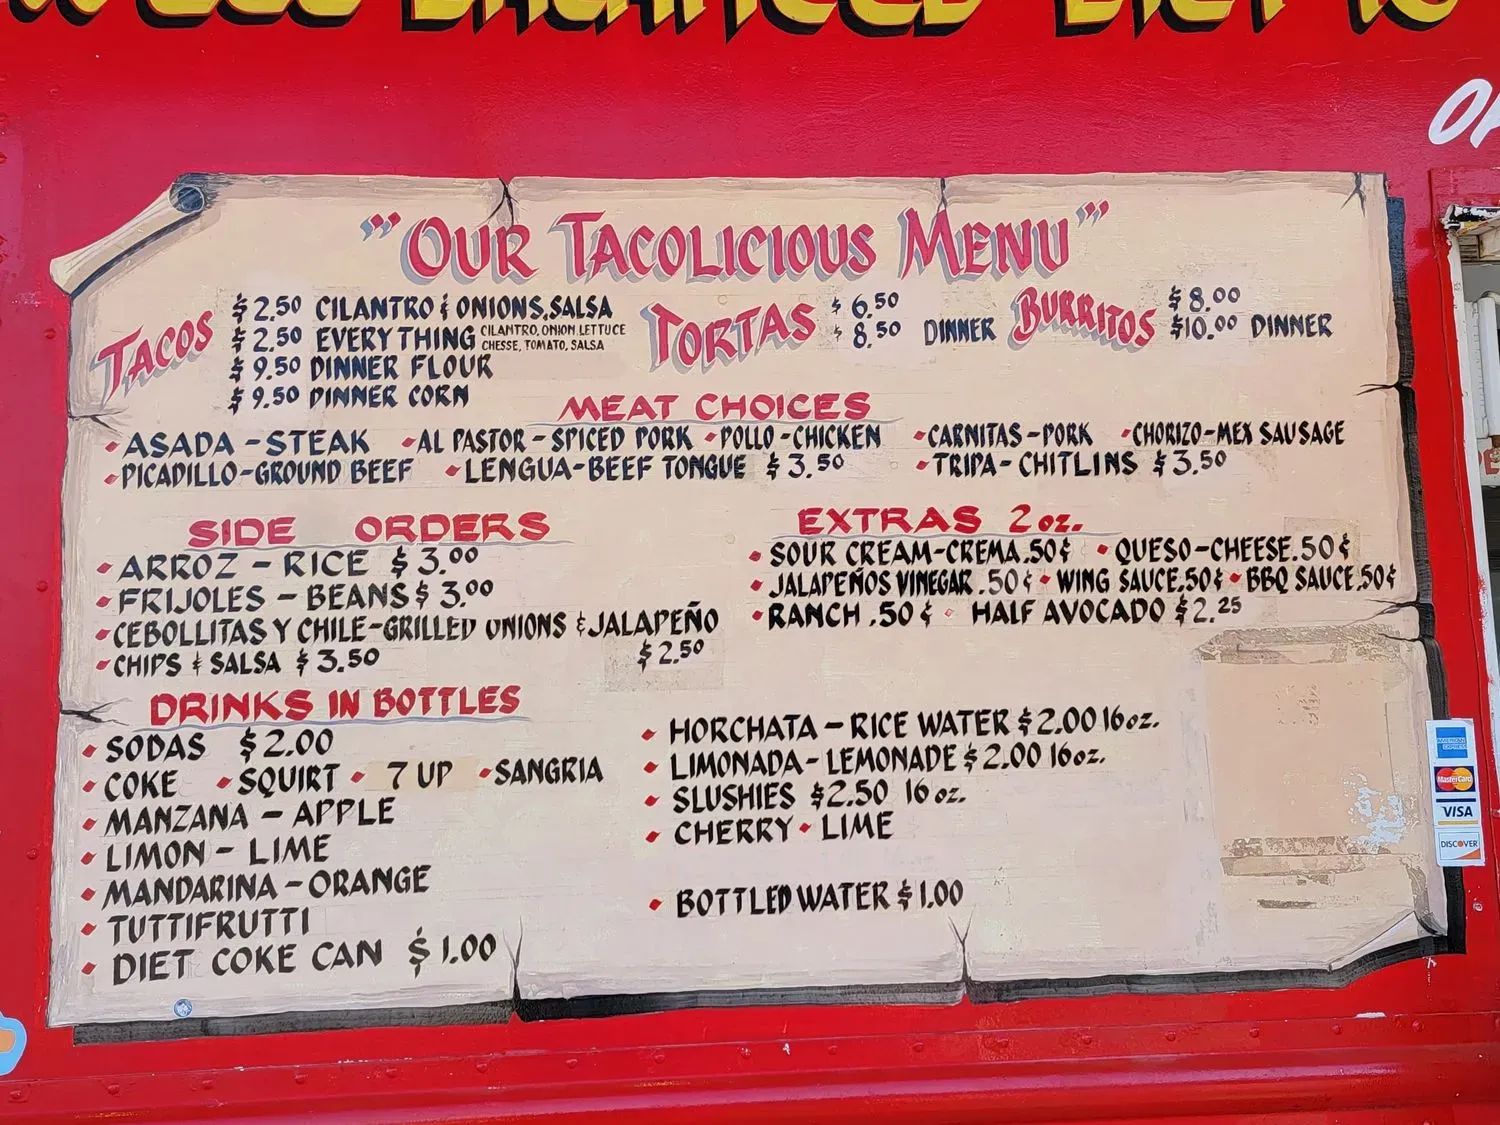 "'OUR TACOLICIOUS MENU"'
TACOS
$2.50 CILANTRO & ONIONS, SALSA
$2.50 EVERYTHING CILANTRO, ONION, LETTUCE
CHESSE, TOMATO, SALSA
$9.50 DINNER FLOUR
$9.50 DINNER CORN
TORTAS
$6.50
$8.50 DINNER
BURRITOS
$8.00
$10.00 DINNER
MEAT CHOICES
ASADA - STEAK • AL PASTOR - SPICED PORK • POLLO - CHICKEN • CARNITAS - PORK • CHORIZO - MEX SAUSAGE
• PICADILLO - GROUND BEEF • LENGUA - BEEF TONGUE $3.50 • TRIPA - CHITLINS $3.50
SIDE ORDERS
• ARROZ - RICE $3.00
• FRIJOLES - BEANS $3.00
• CEBOLLITAS Y CHILE - GRILLED ONIONS & JALAPEÑO
$2.50
• CHIPS & SALSA $3.50
EXTRAS 2 oz.
• SOUR CREAM - CREMA .50¢ • QUESO - CHEESE .50¢
• JALAPEÑOS VINEGAR .50¢ • WING SAUCE .50¢ • BBQ SAUCE .50¢
• RANCH .50¢ • HALF AVOCADO $2.25
DRINKS IN BOTTLES
• SODAS $2.00
• COKE • SQUIRT • 7 UP • SANGRIA
• MANZANA - APPLE
• LIMON - LIME
• MANDARINA - ORANGE
• TUTTIFRUTTI
• DIET COKE CAN $1.00
• HORCHATA - RICE WATER $2.00 16 oz.
• LIMONADA - LEMONADE $2.00 16 oz.
• SLUSHIES $2.50 16 oz.
• CHERRY • LIME
• BOTTLED WATER $1.00
AMERICAN EXPRESS
MasterCard
VISA
DISCOVER